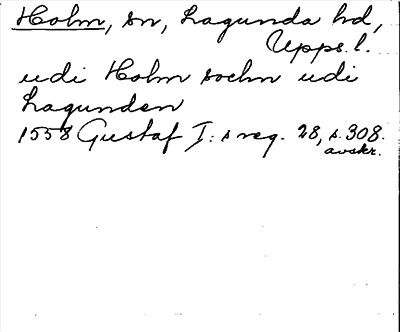 Holm, sn, Lagunda hd,
Upps. l.
udi Holm sochn udi
Lagunden
1558 Gustaf I:s reg. 28, s. 308.
avskr.